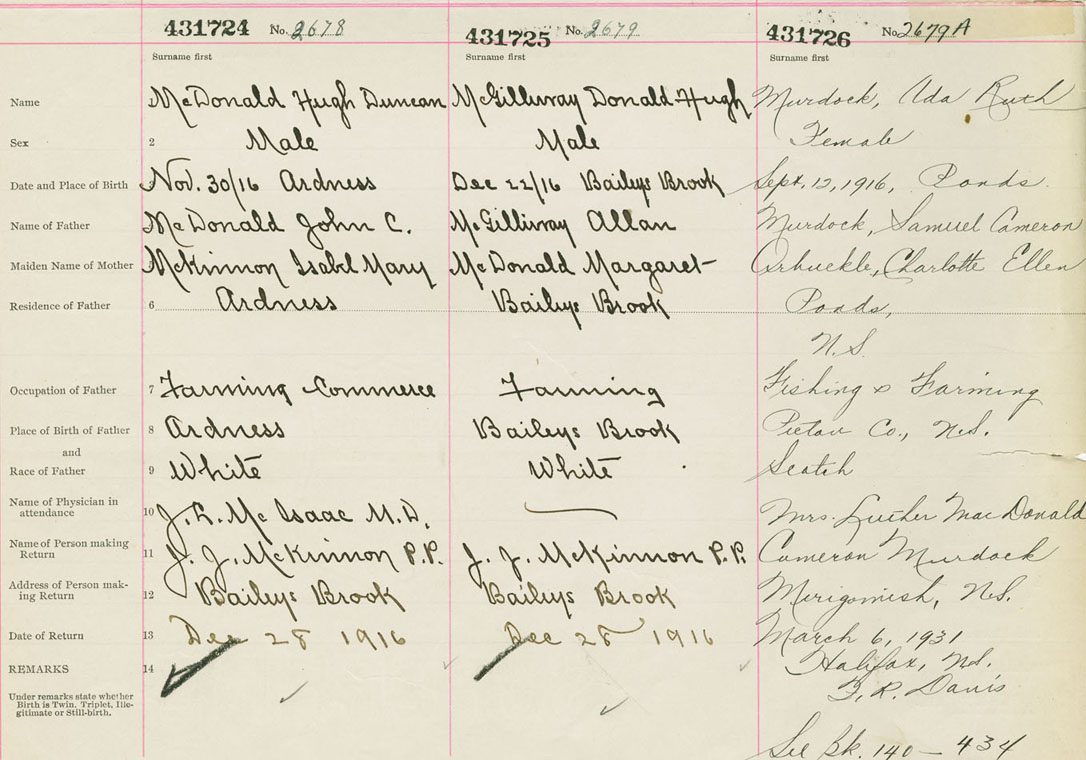 431724 No. 2678 431725 No. 2679 431726 No. 2679A
Surname first Surname first Surname first
Name McDonald Hugh Duncan McGillivray Donald Hugh Murdock, Ada Ruth
Sex 2 Male Male Female
Date and Place of Birth Nov. 30/16 Ardness Dec 22/16 Baileys Brook Sept. 12, 1916, Ponds.
Name of Father McDonald John C. McGillivray Allan Murdock, Samuel Cameron
Maiden Name of Mother McKinnon Isabel Mary McDonald Margaret Arbuckle, Charlotte Ellen
Residence of Father 6 Ardness Baileys Brook Ponds,
N.S.
Occupation of Father 7 Farming Commerce Farming Fishing & Farming
Place of Birth of Father 8 Ardness Baileys Brook Pictou Co., N.S.
and
Race of Father 9 White White Scotch
Name of Physician in
attendance 10 J. McIsaac M.D. Mrs. Luther MacDonald
Name of Person making
Return 11 J. J. McKinnon P.P. J. J. McKinnon P.P. Cameron Murdock
Address of Person mak-
ing Return 12 Baileys Brook Baileys Brook Merigomish, N.S.
Date of Return 13 Dec 28 1916 Dec 28 1916 March 6, 1931
REMARKS 14 Halifax, N.S.
Under remarks state whether
Birth is Twin, Triplet, Ille-
gitimate or Still-birth.
R. Davis
See Bk. 140 — 434